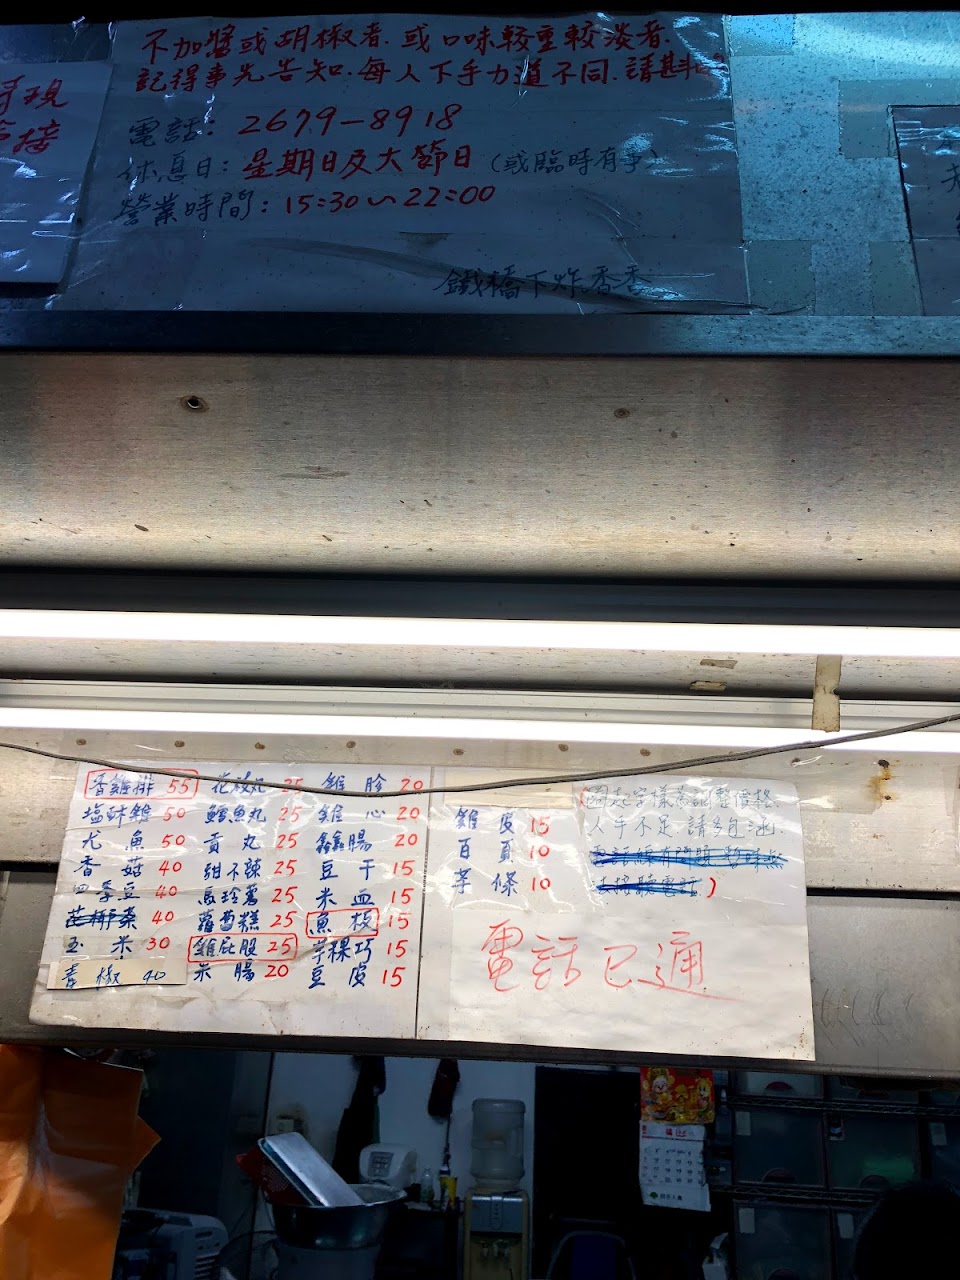 不加醬或胡椒者.或口味較重較淡者.
記得事先告知.每人下手力道不同.請斟
電話: 2679-8918
休息日: 星期日及大節日 (或臨時有事)
營業時間: 15:30~22:00
鐵橋下炸香香
現
接
香雞排 55
塩酥雞 50
尤魚 50
香菇 40
四季豆 40
40
玉米 30
青椒 40
花枝丸 25
鱈魚丸 25
貢丸 25
甜不辣 25
馬玲薯 25
蘿蔔糕 25
雞屁股 25
米腸 20
雞胗 20
雞心 20
鑫腸 20
豆干 15
米血 15
魚板 15
芋粿巧 15
豆皮 15
雞皮 15
百頁 10
芋條 10
字樣為調整價格.
人手不足.請多包涵.
電話已通